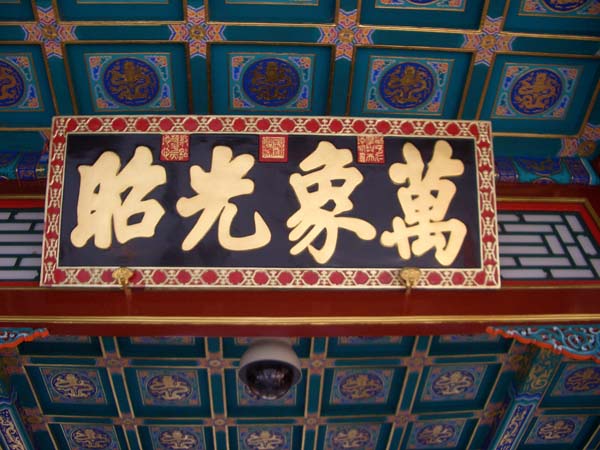 萬象光昭